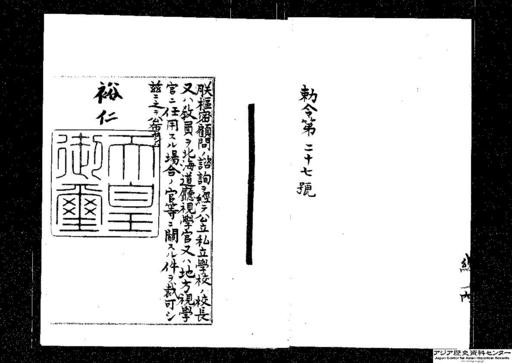 勅令第二十七號
朕樞密顧問ノ諮詢ヲ經テ公立私立學校ノ校長
又ハ敎員ヲ北海道廳視學官又ハ地方視學
官ニ任用スル場合ノ官等ニ關スル件ヲ裁可シ
茲ニ之ヲ公布セシム
裕仁
天皇
御璽
アジア歴史資料センター
Japan Center for Asian Historical Records